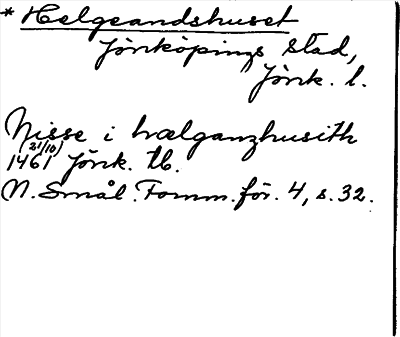 * Helgeandshuset
Jönköpings stad,
Jönk. l.
Nisse i hælganzhusith
(21/10)
1461 Jönk. tb.
N. Smål. Fornm. för. 4, s. 32.